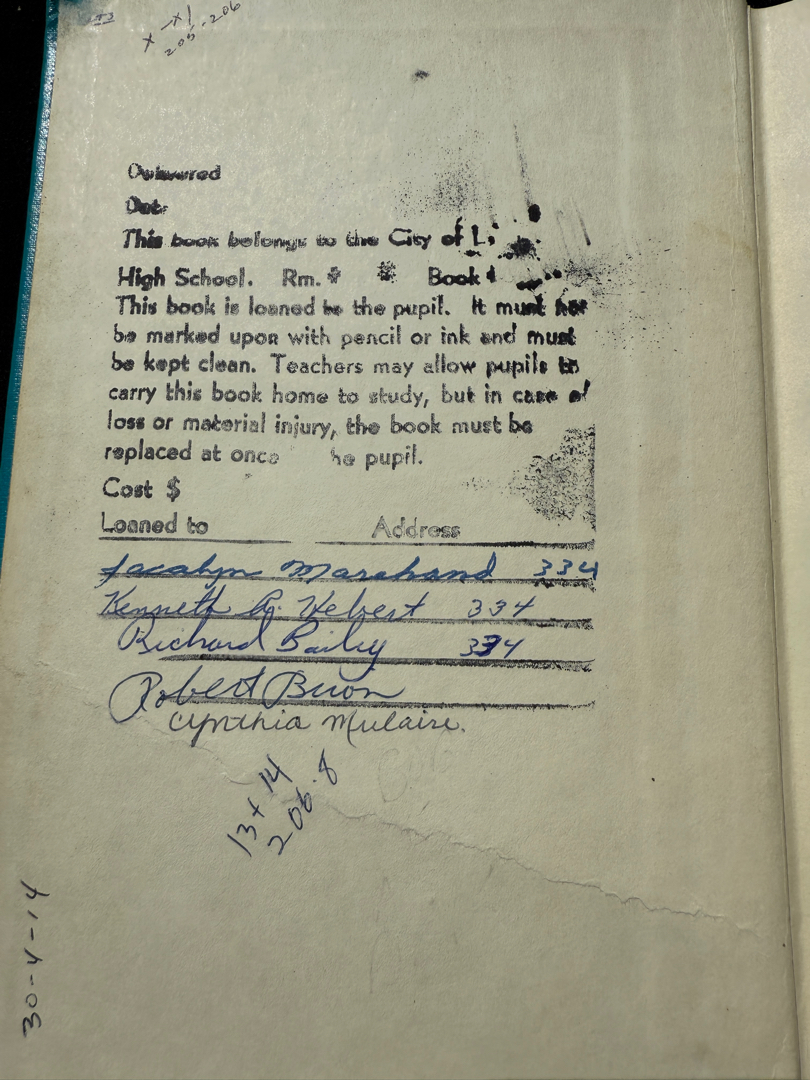 205-206
Delivered
Date
This book belongs to the City of
High School. Rm. # Book
This book is loaned to the pupil. It must not
be marked upon with pencil or ink and must
be kept clean. Teachers may allow pupils to
carry this book home to study, but in case of
loss or material injury, the book must be
replaced at once he pupil.
Cost $
Loaned to Address
Jacalyn Marchand 334
Kenneth Hebert 334
Richard Bailey 334
Robert
Cynthia Mulaire.
13+14
206.8
30-4-14